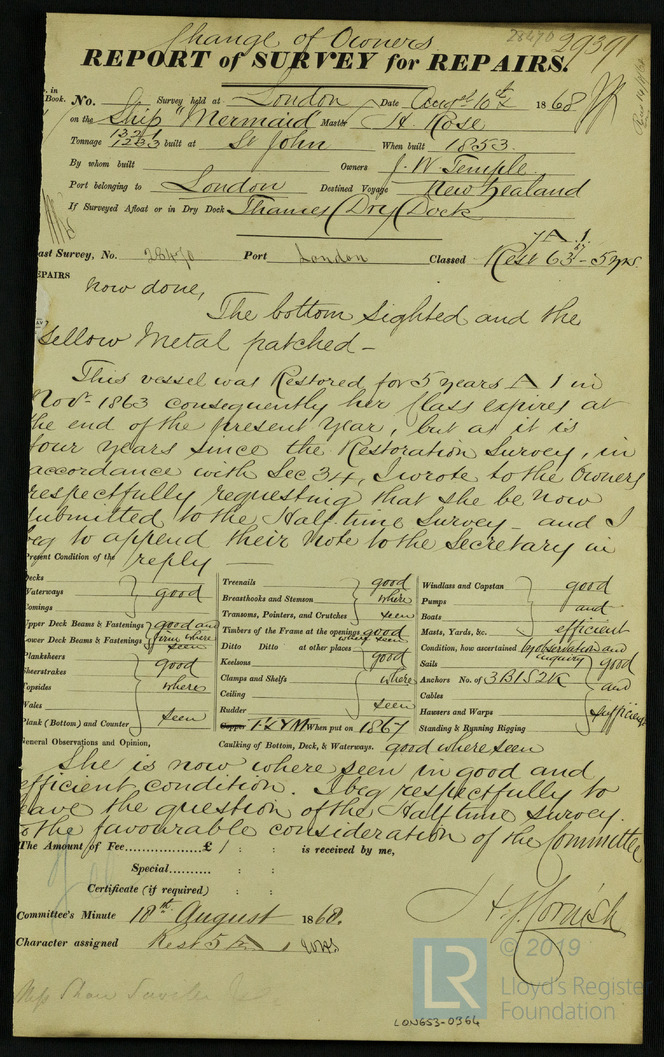 Change of Owners
28470 29391
REPORT of SURVEY for REPAIRS.
in Book. No. Survey held at London Date Augst 10th 1868
on the Ship "Mermaid" Master A Rose
Tonnage 1321 1233 built at St John When built 1853.
By whom built Owners J. W Temple.
Port belonging to London Destined Voyage New Zealand
If Surveyed Afloat or in Dry Dock Thames (Dry) Dock
7 A 1.
ast Survey, No. 28470 Port London Classed Rest 63 - 5 yrs
EPAIRS
now done,
The bottom sighted and the
Yellow Metal patched -
This vessel was Restored for 5 years A 1 in
Novr 1863 consequently her Class expires at
the end of the present Year, but as it is
four years since the Restoration Survey, in
accordance with Sec 34, I wrote to the Owners
respectfully requesting that she be now
submitted to the Half time Survey - and I
beg to append their note to the Secretary in
reply
Present Condition of the
Decks
Waterways
Comings
good
Upper Deck Beams & Fastenings
Lower Deck Beams & Fastenings
good and firm where seen
Planksheers
Sheerstrakes
Topsides
Wales
Plank (Bottom) and Counter
good where seen
Treenails
Breasthooks and Stemson
Transoms, Pointers, and Crutches
good where seen
Timbers of the Frame at the openings good
Ditto Ditto at other places where seen
Keelsons
Clamps and Shelfs
Ceiling
Rudder
good where seen
Copper F & YM When put on 1867
Caulking of Bottom, Deck, & Waterways. good where seen
Windlass and Capstan
Pumps
Boats
Masts, Yards, &c.
good and efficient
Condition, how ascertained by observation and enquiry
Sails
Anchors No. of 3 B 1 S 2 K
Cables
Hawsers and Warps
Standing & Running Rigging
good and sufficient
General Observations and Opinion,
She is now where seen in good and
efficient condition. I beg respectfully to
leave the question of the Half time survey
to the favourable consideration of the Committee
The Amount of Fee............£ 1 : : is received by me,
Special....... : :
Certificate (if required) : :
H. J. Cornish
Committee's Minute 18th August 1868.
Character assigned Rest 5 A 1
© 2019
LR Lloyd's Register
Foundation
LON653-0364